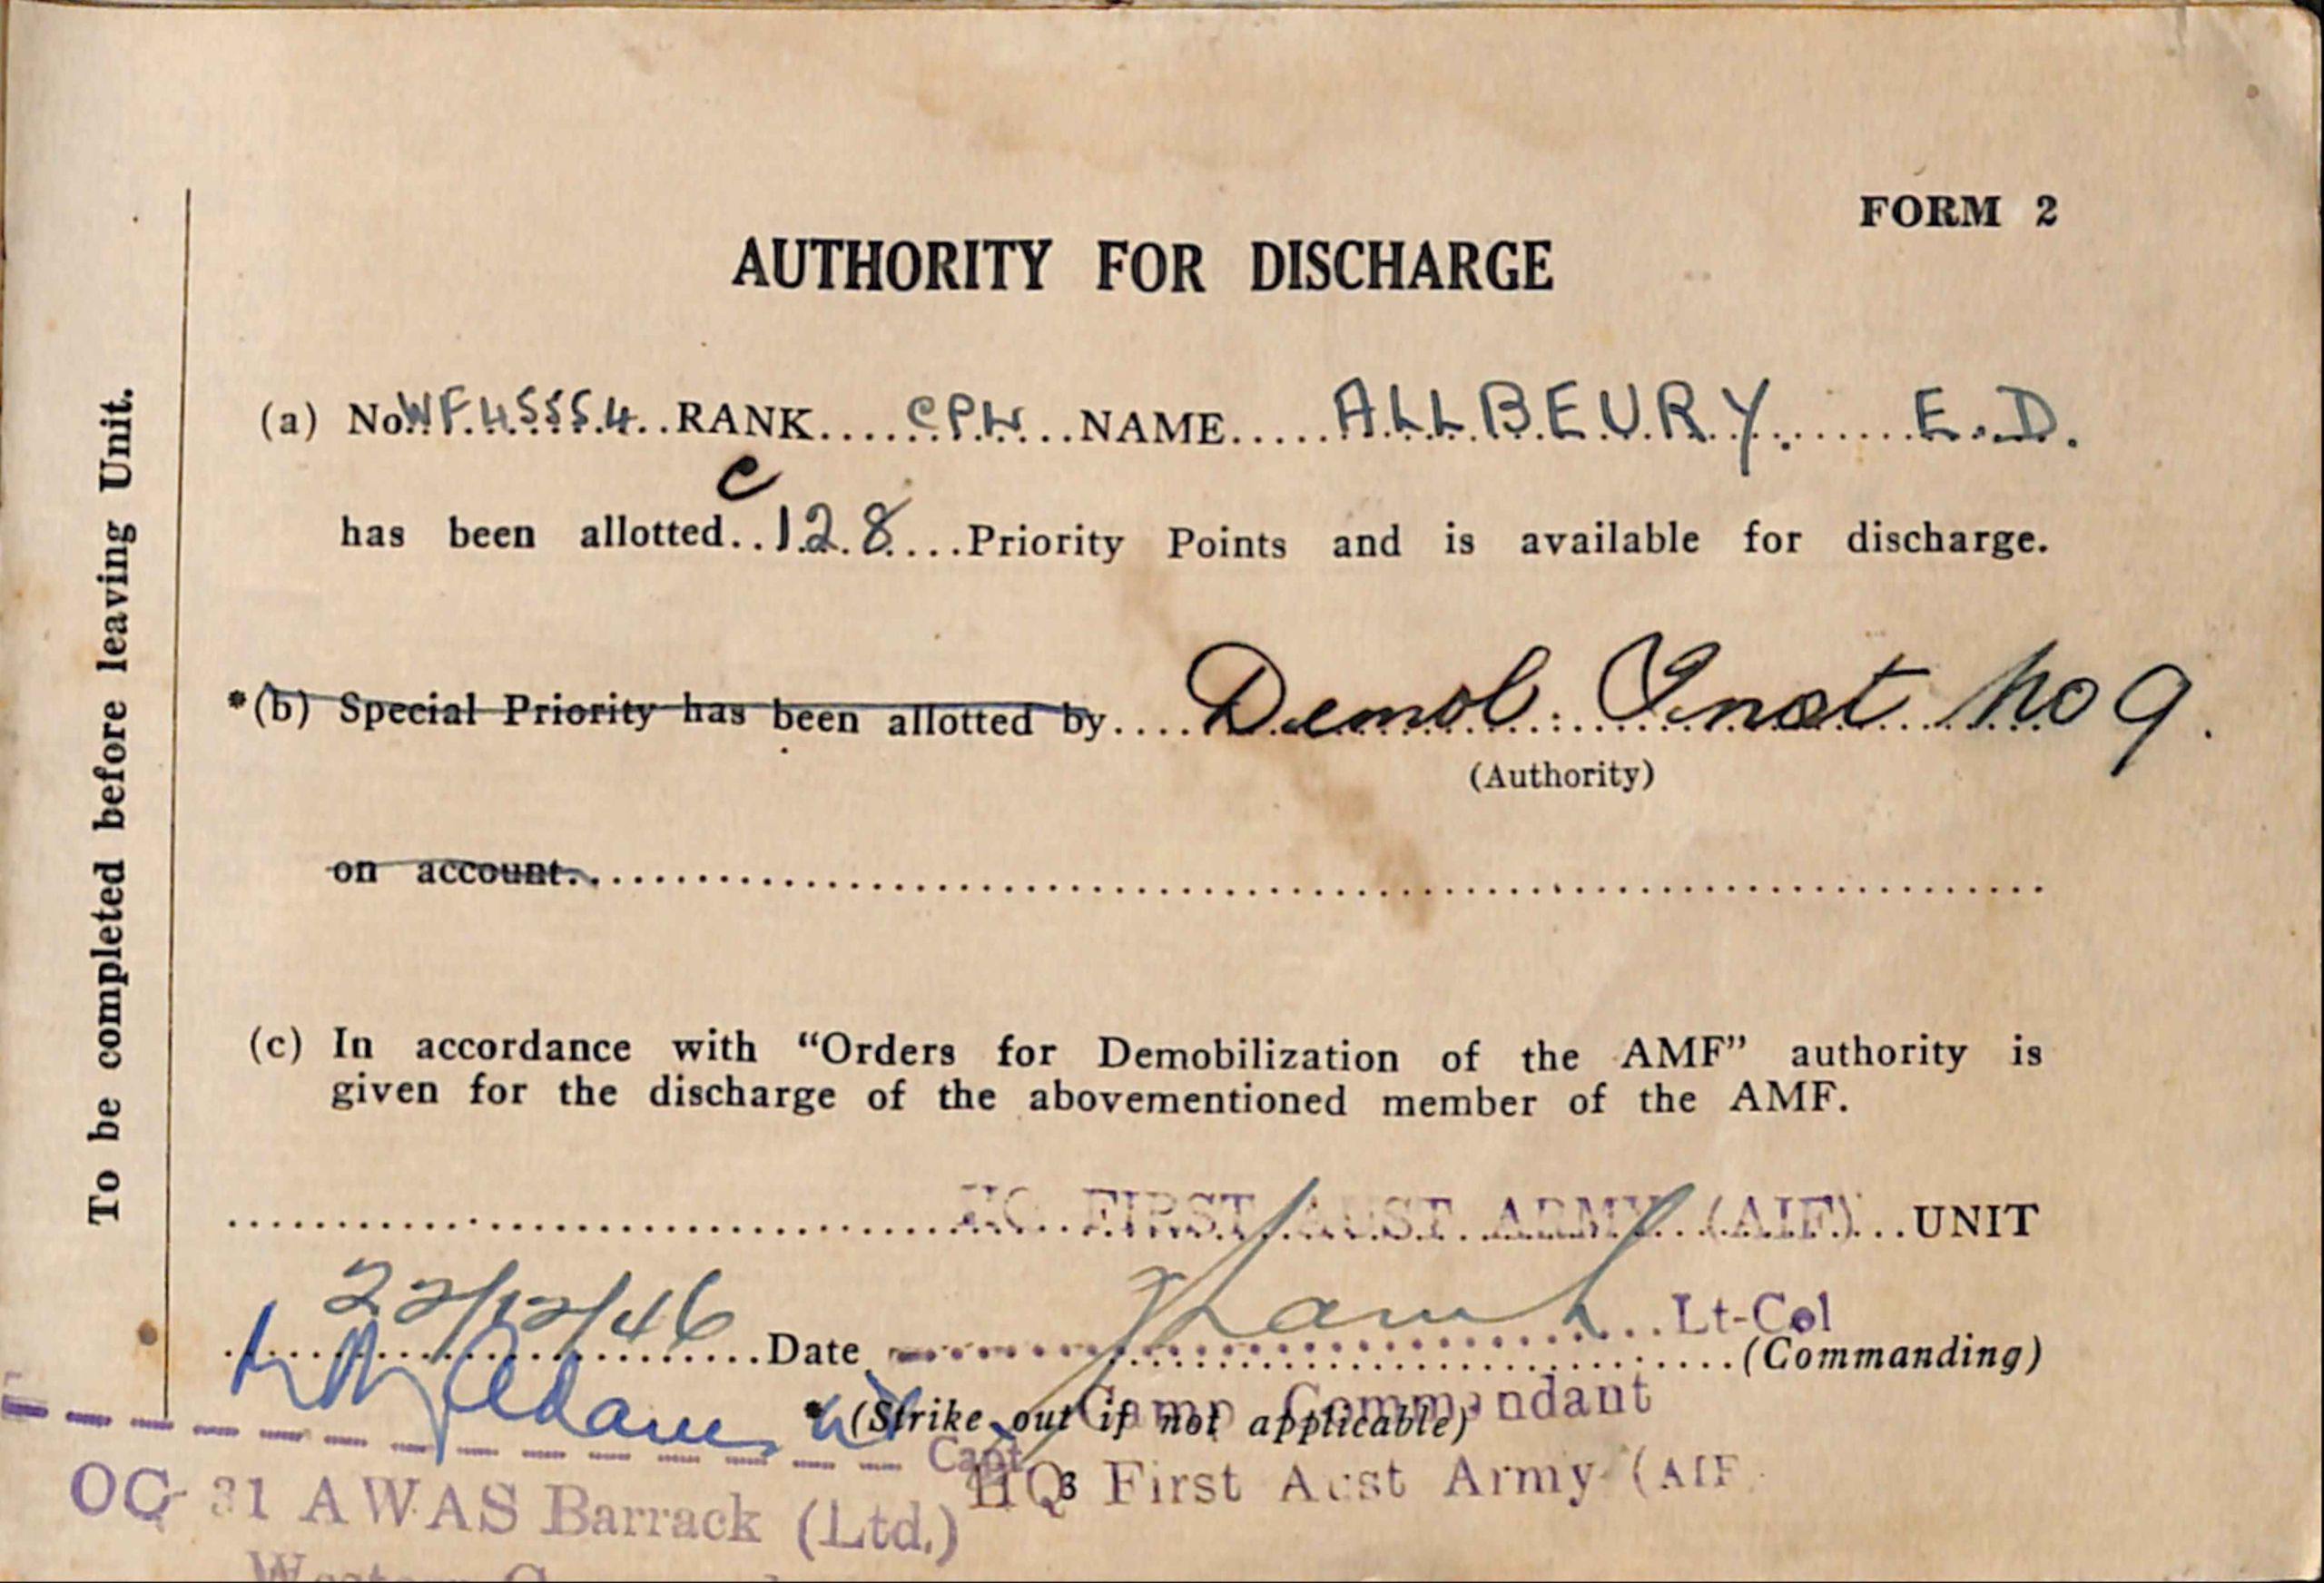 FORM 2
AUTHORITY FOR DISCHARGE
To be completed before leaving Unit.
(a) No. WF45554 RANK CPL NAME ALLBEURY. E.D.
C
has been allotted 128 Priority Points and is available for discharge.
*(b) Special Priority has been allotted by Demob. Inst No 9.
(Authority)
on account
(c) In accordance with “Orders for Demobilization of the AMF” authority is
given for the discharge of the abovementioned member of the AMF.
HQ FIRST AUST ARMY (AIF) UNIT
Lt-Col
/46 Date (Commanding)
Camp Commandant
*(Strike out if not applicable)
Capt
HQ First Aust Army (AIF
3
OC 31 AWAS Barrack (Ltd.)